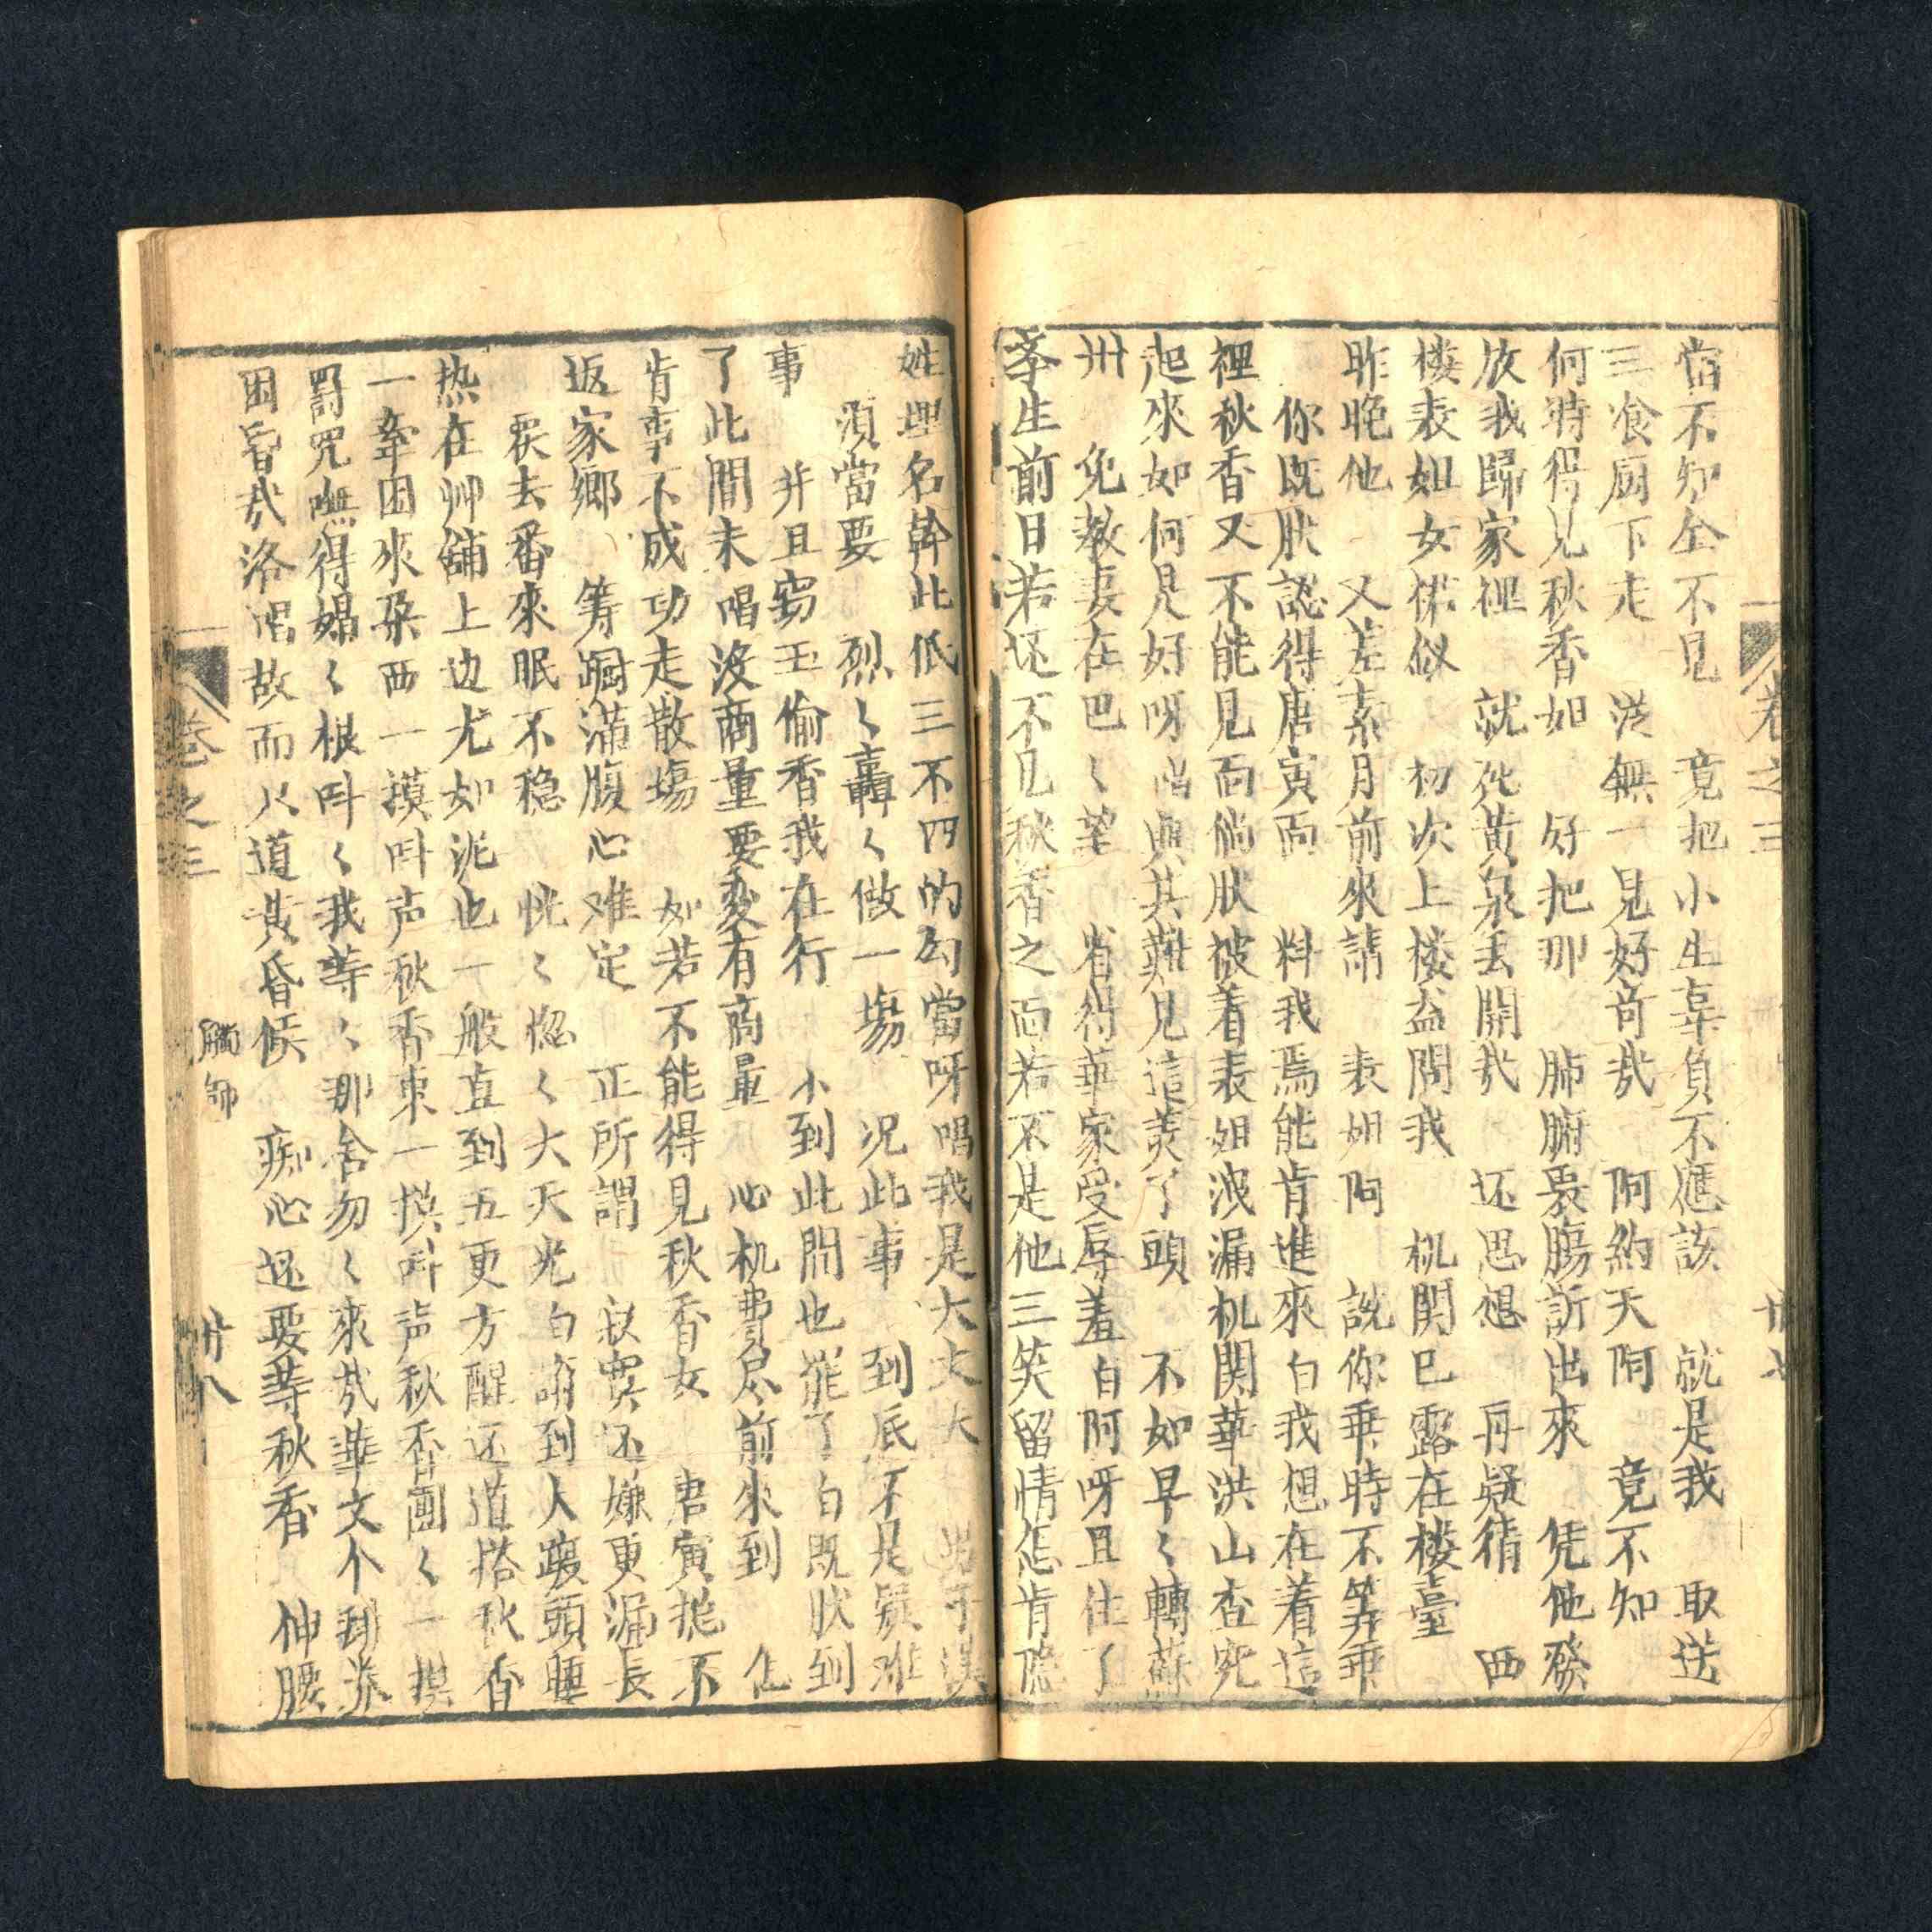 卷之三
宿不知全不見　竟把小生辜負不應該　就是我　取送
三飡厨下走　從無一見好奇㢤　阿約天阿　竟不知
何時得見秋香如　好把那　肺腑衷腸訴出來　凭他發
放我歸家裡　就死黃泉丢開㢤　还思想　再疑猜　西
楼表姐女裙釵　初次上楼盆問我　机関已露在楼臺
昨晚他　又差素月前來請　表姐阿　說你乖時不筭乖
你既肰認得唐寅面　料我焉能肯進來白我想在着這
裡秋香又不能見面倘肰被着表姐洩漏机関華洪山查究
起來如何是好呀唱與其難見這美丫頭　不如早〻轉蘇
州　免教妻在巴〻望　省得華家受辱羞白阿呀且住了
李生前日若还不見秋香之面若不是他三笑留情怎肯隱
姓埋名幹此低三不四的勾當呀唱我是大丈夫
須當要　烈〻轟〻做一塲　况此事　到底不是疑难
事　并且窃玉偷香我在行　不到此間也罷了白既肰到
了此間未唱没商量要変有商量　心机費尽前來到　怎
肯事不成功走散塲　如若不能得見秋香女　唐寅抵不
返家鄉　籌躊滿腹心难定　正所謂　寂寞还嫌更漏長
睡去番來眠不稳　恍〻惚〻大天光白誰到人踱頭踵
热在艸舖上边尤如泥也一般直到五更方醒还道搭秋香
一牽困來朶西一摸呌声秋香東一摸呌声秋香圑〻一摸
罰咒嘸得婸〻根呌〻我等〻那舍勿〻來㢤華文个
困昏㢤洛唱故而从道黃昏候　痴心还要等秋香　伸腰
卷之三
廿八